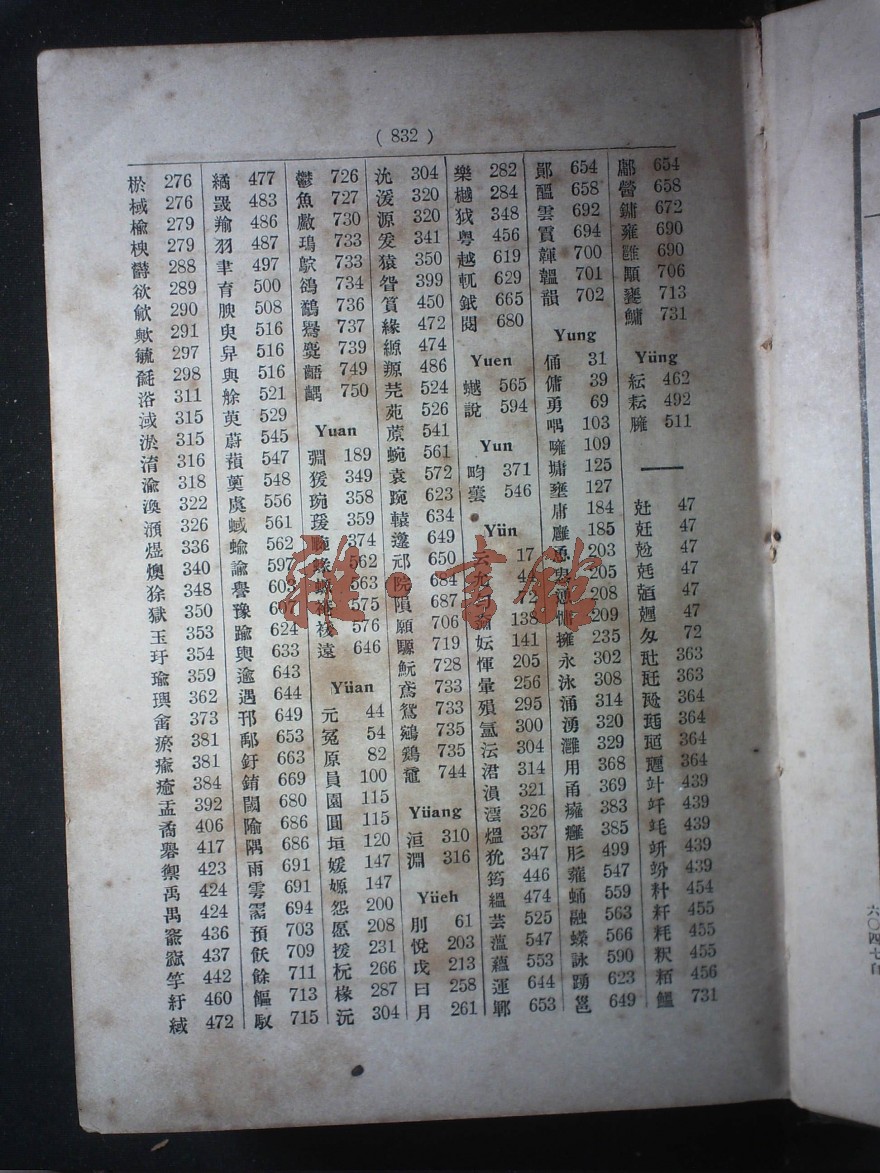 ( 832 )
棜 276
棫 276
楡 279
楰 279
欝 288
欲 289
歈 290
歟 291
毓 297
毹 298
浴 311
淢 315
淤 315
淯 316
渝 318
澳 322
澦 326
煜 336
燠 340
狳 348
獄 350
玉 353
玗 354
瑜 359
璵 362
畬 373
瘀 381
瘉 381
癒 384
盂 392
矞 406
礜 417
禦 423
禹 424
禺 424
窬 436
窳 437
竽 442
紆 460
緎 472
繘 477
罭 483
羭 486
羽 487
聿 497
育 500
腴 508
臾 516
舁 516
與 516
艅 521
萸 529
蔚 545
蕷 547
薁 548
虞 556
蜮 561
蝓 562
諭 597
譽 603
豫 607
踰 624
輿 633
逾 643
遇 644
邘 649
鄅 653
釪 663
錥 669
閾 680
隃 686
隅 686
雨 691
雩 691
霱 694
預 703
飫 709
餘 711
饇 713
馭 715
鬱 726
魚 727
鰴 730
鳿 733
鴥 733
鵒 734
鷸 736
鸒 737
麌 739
齬 749
齵 750
Yuan
弲 189
猨 349
琬 358
瑗 359
畹 374
蝝 562
螈 563
裷 575
褑 576
遠 646
Yüan
元 44
冤 54
原 82
員 100
園 115
圓 115
垣 120
媛 147
嫄 147
怨 200
愿 208
援 231
杬 266
椽 287
沅 304
沇 304
湲 320
源 320
爰 341
猿 350
眢 399
篔 450
緣 472
縓 474
羱 486
芫 524
苑 526
蒝 541
蜿 561
袁 572
踠 623
轅 634
邍 649
邧 650
院 684
隕 687
願 706
騵 719
魭 728
鳶 733
鴛 733
鵷 735
鶢 735
黿 744
Yüang
洹 310
淵 316
Yüeh
刖 61
悅 203
戉 213
曰 258
月 261
樂 282
樾 284
狘 348
粤 456
越 619
軏 629
鉞 665
閱 680
Yuen
蚎 565
說 594
Yun
畇 371
蕓 546
Yün
云 17
允 44
勻 72
奫 138
妘 141
惲 205
暈 256
殞 295
氳 300
沄 304
涒 314
溳 321
澐 326
熅 337
狁 347
筠 446
縕 474
芸 525
薀 547
蘊 553
運 644
鄆 653
鄖 654
醞 658
雲 692
霣 694
韗 700
韞 701
韻 702
Yung
俑 31
傭 39
勇 69
喁 103
噰 109
墉 125
壅 127
庸 184
廱 185
恿 203
悤 205
慂 208
慵 209
擁 235
永 302
泳 308
涌 314
湧 320
灉 329
用 368
甬 369
癕 383
癰 385
肜 499
蕹 547
蛹 559
融 563
蠑 566
詠 590
踴 623
邕 649
鄘 654
醟 658
鏞 672
雍 690
雝 690
顒 706
饔 713
鱅 731
Yüng
紜 462
耘 492
臃 511
兙 47
兛 47
兝 47
兞 47
兡 47
兣 47
匁 72
瓧 363
瓩 363
瓰 364
瓱 364
瓸 364
甅 364
竍 439
竏 439
竓 439
竕 439
竔 439
籵 454
粁 455
粍 455
粎 455
粨 456
鰮 731
六〇四七百